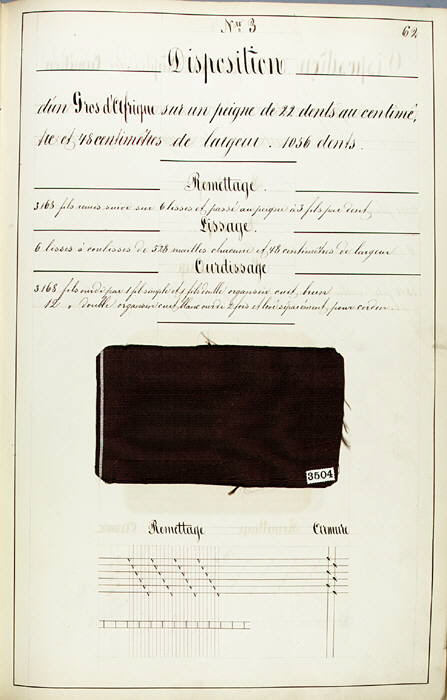 Nº 3
62
Disposition
d'un Gros d'Afrique sur un peigne de 22 dents au centimè,
tre et 48 centimètres de largeur. 1056 dents.
Remettage.
3168 fils remis suivis sur 6 lisses et passé au peigne à 3 fils par dent
Lissage.
6 lisses à coulisses de 528 mailles chacune et 48 centimètres de largeur
Ourdissage
3168 fils ourdi par 1 fil simple et 1 fil double organsin cuit, brun
12 " double organsin cuit blanc ourdi 2 fois et levé séparément, pour cordon
3504
Remettage
Armure